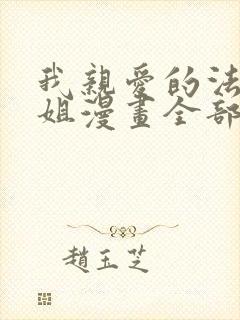 我親愛的法
姐漫畫全部
趙玉芝